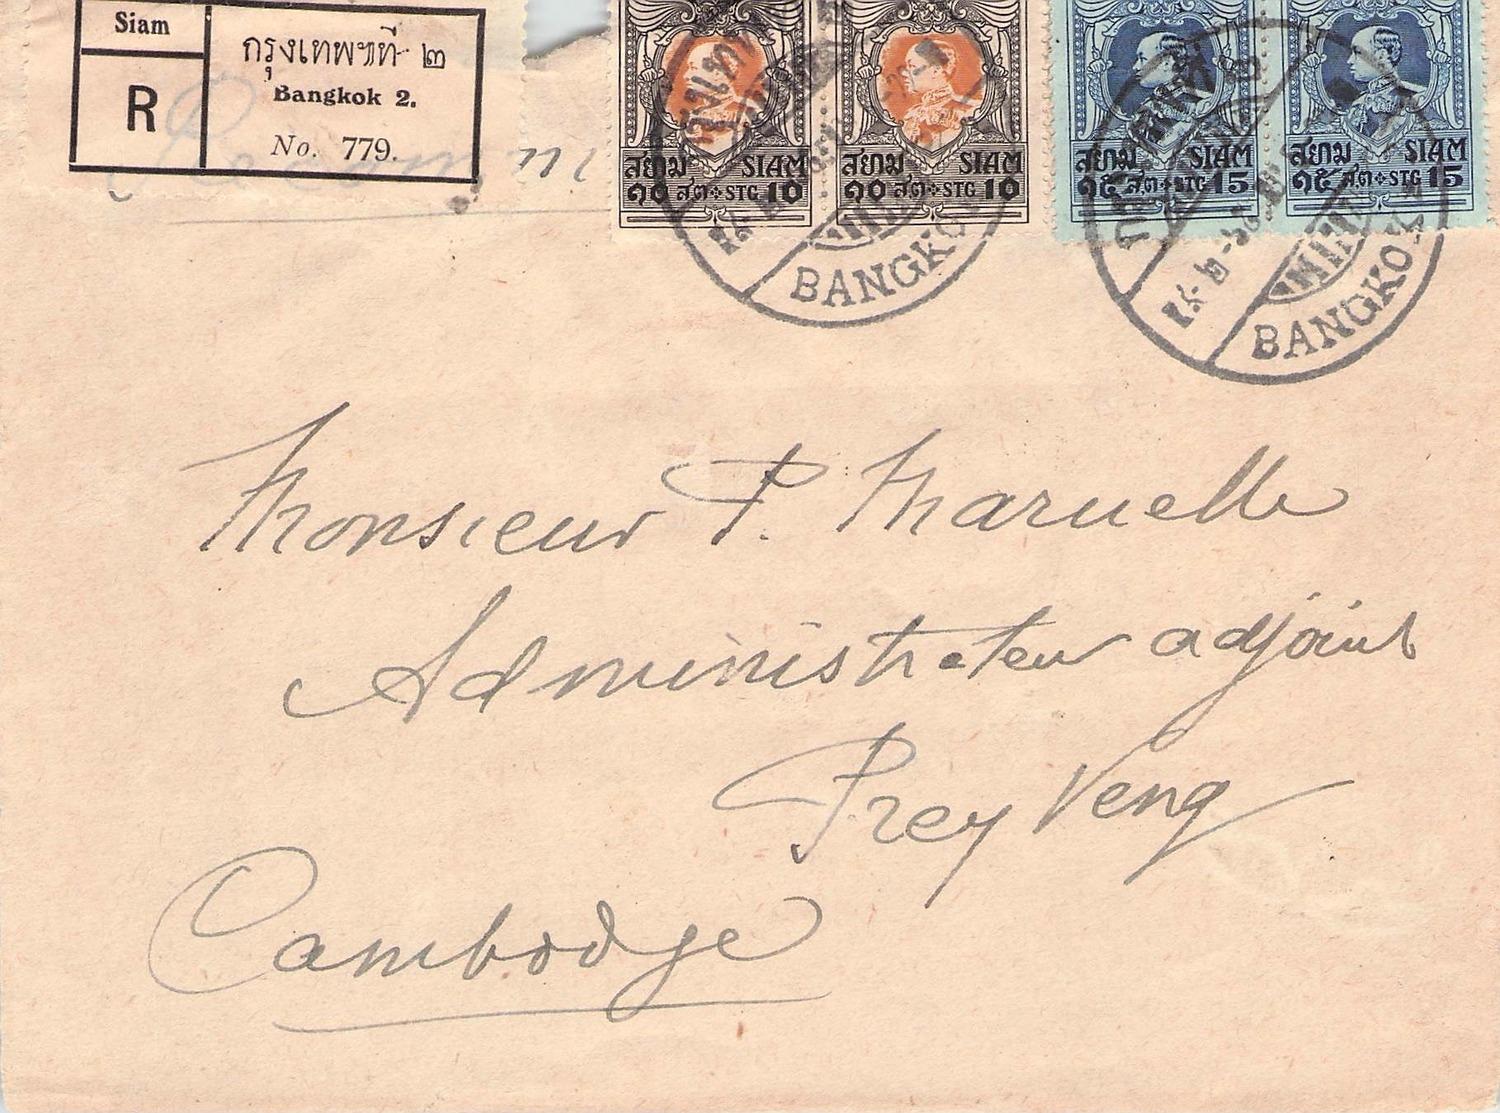 Siam
R
กรุงเทพฯที่ ๒
Bangkok 2.
No. 779.
สยาม SIAM
๑๐ สต STG 10
สยาม SIAM
๑๐ สต STG 10
สยาม SIAM
๑๕ สต STG 15
สยาม SIAM
๑๕ สต STG 15
BANGKOK
BANGKOK
Monsieur P. Maruelle
Administrateur adjoint
Prey Veng
Cambodge